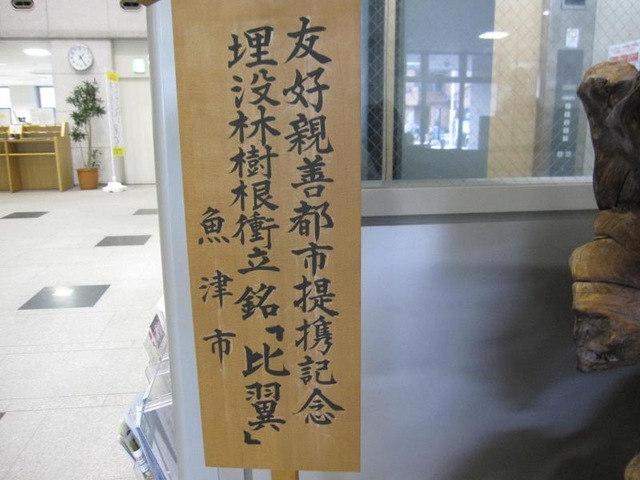 友好親善都市提携記念
埋没林樹根衝立銘「比翼」
魚津市